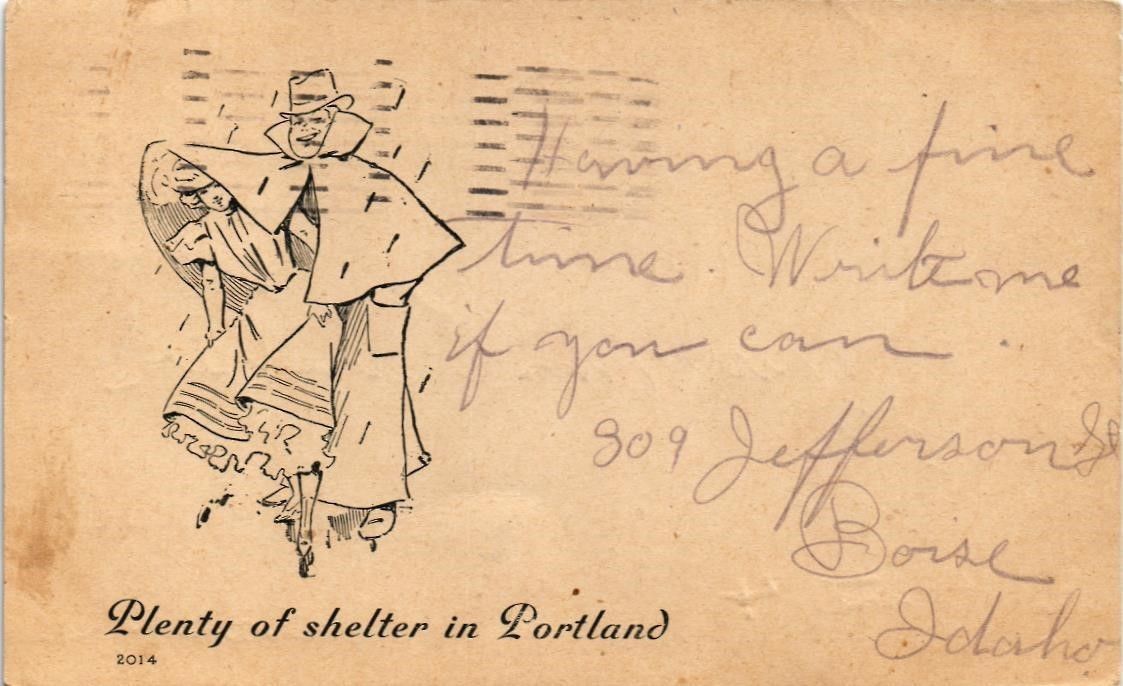 Having a fine
time. Write me
if you can.
309 Jefferson St
Boise
Idaho
Plenty of shelter in Portland
2014